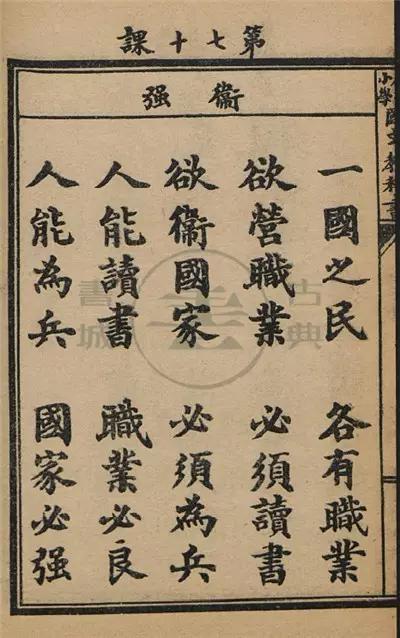 第七十課
衞强
一國之民 各有職業
欲營職業 必須讀書
欲衞國家 必須為兵
人能讀書 職業必良
人能為兵 國家必强
小學國文教科書
古典書城